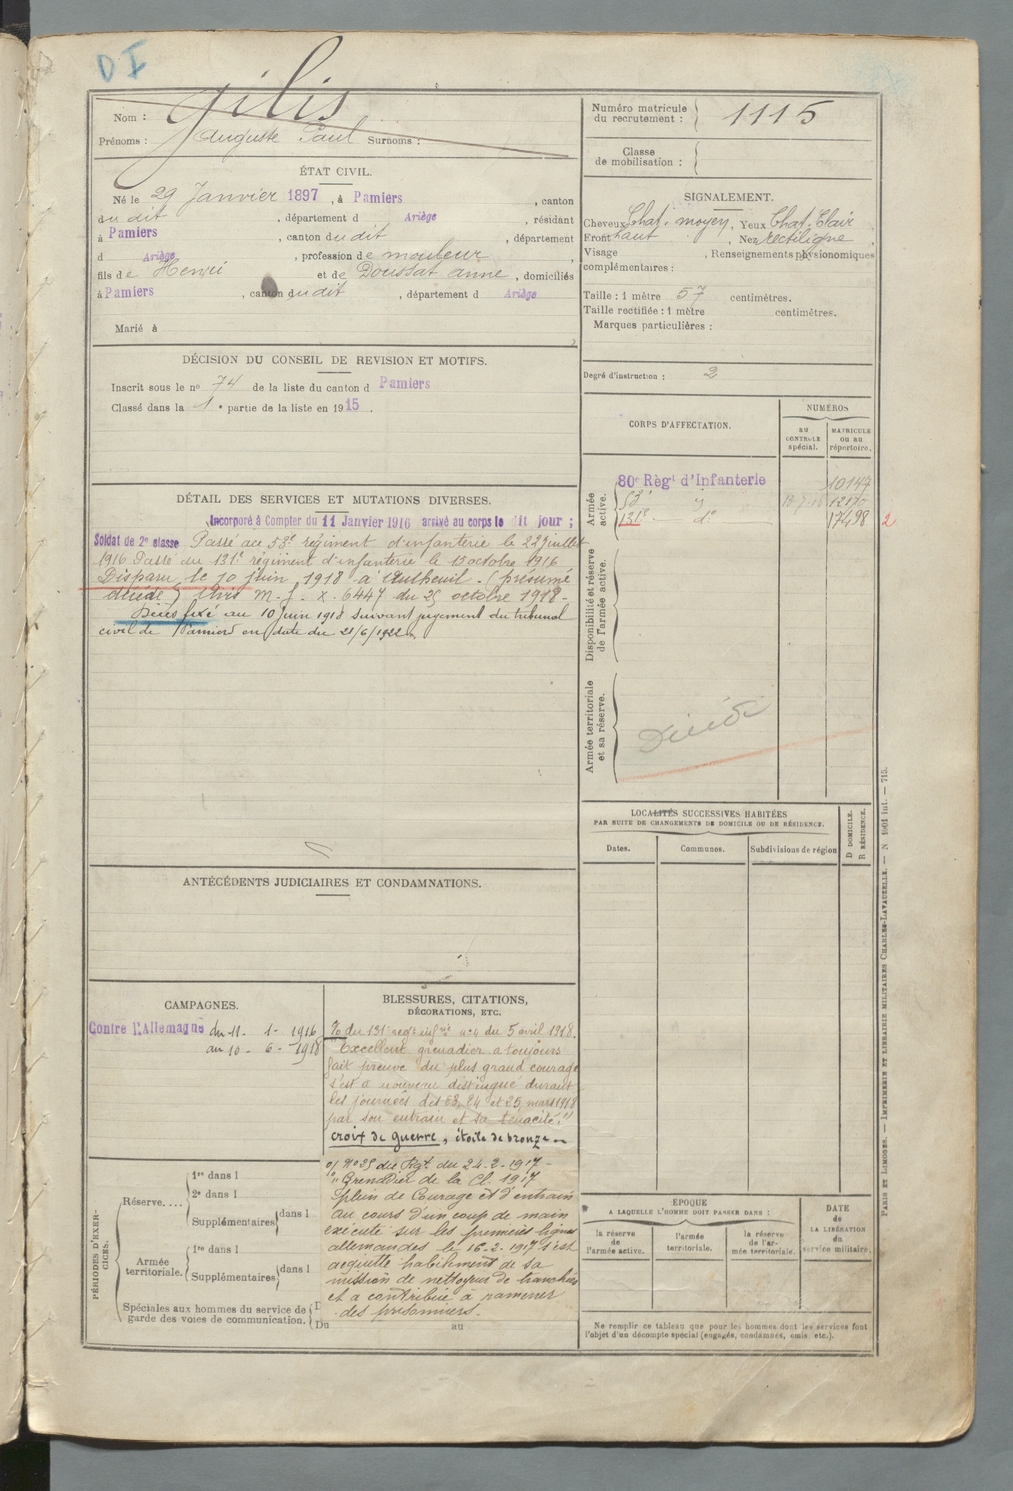 D I
Nom : Gilis
Prénoms : Auguste Paul Surnoms :
ÉTAT CIVIL.
Né le 29 Janvier 1897, à Pamiers, canton
dudit, département d Ariège, résidant
à Pamiers, canton dudit, département
d Ariège, profession de mouleur,
fils de Henri et de Doussat anne, domiciliés
à Pamiers, canton dudit, département d Ariège
Marié à
DÉCISION DU CONSEIL DE REVISION ET MOTIFS.
Inscrit sous le no 74 de la liste du canton d Pamiers
Classé dans la 1e partie de la liste en 1915.
DÉTAIL DES SERVICES ET MUTATIONS DIVERSES.
Incorporé à Compter du 11 Janvier 1916 arrivé au corps le dit jour ;
Soldat de 2e classe Passé au 53e régiment d'infanterie le 22 juillet
1916 Passé au 131e régiment d'infanterie le 15 octobre 1916
Disparu le 10 juin 1918 à Autheuil. (présumé
décédé) Avis M. J. X. 6447 du 25 octobre 1918-
Décès fixé au 10 juin 1918 suivant jugement du tribunal
civil de Pamiers en date du 21/6/1922
ANTÉCÉDENTS JUDICIAIRES ET CONDAMNATIONS.
CAMPAGNES.
Contre l'Allemagne du 11 - 1 - 1916
au 10 - 6 - 1918
BLESSURES, CITATIONS,
DÉCORATIONS, ETC.
du 131e regt infrie no 4 du 5 avril 1918.
Excellent grenadier a toujours
fait preuve du plus grand courage
s'est à nouveau distingué durant
les journées des 23, 24 et 25 mars 1918
par son entrain et sa ténacité."
croix de guerre, étoile de bronze
o/ No 35 du Rgt. du 24-2-1917-
"Grenadier de la Cl. 1917
plein de Courage et d'entrain
au cours d'un coup de main
exécuté sur les premières lignes
allemandes le 16-2-1917 s'est
acquitté habilement de sa
mission de nettoyeur de tranchées
et a contribué à ramener
des prisonniers.
PÉRIODES D'EXER-
CICES.
Réserve....
1re dans l
2e dans l
Supplémentaires dans l
Armée
territoriale.
1re dans l
Supplémentaires dans l
Spéciales aux hommes du service de
garde des voies de communication.
Du au
Numéro matricule
du recrutement : 1115
Classe
de mobilisation :
SIGNALEMENT.
Cheveux Chat. moyen, Yeux Chat. Clair
Front haut, Nez rectiligne,
Visage, Renseignements physionomiques
complémentaires :
Taille : 1 mètre 57 centimètres.
Taille rectifiée : 1 mètre centimètres.
Marques particulières :
Degré d'instruction : 2
CORPS D'AFFECTATION.
NUMÉROS
AU
CONTROLE
spécial.
MATRICULE
ou au
répertoire.
Armée
active.
80e Régt d'Infanterie 10147
53e
131e do 17498 2
Disponibilité et réserve
de l'armée active.
Armée territoriale
et sa réserve.
Décédé
LOCALITÉS SUCCESSIVES HABITÉES
PAR SUITE DE CHANGEMENTS DE DOMICILE OU DE RÉSIDENCE.
Dates. Communes. Subdivisions de région
D DOMICILE.
R RÉSIDENCE.
ÉPOQUE
A LAQUELLE L'HOMME DOIT PASSER DANS :
la réserve
de
l'armée active.
l'armée
territoriale.
la réserve
de l'ar-
mée territoriale.
DATE
de
LA LIBÉRATION
du
service militaire.
Ne remplir ce tableau que pour les hommes dont les services font
l'objet d'un décompte spécial (engagés, condamnés, omis, etc.).
PARIS ET LIMOGES. — IMPRIMERIE ET LIBRAIRIE MILITAIRES CHARLES-LAVAUZELLE. — N 1901 int. — 715.